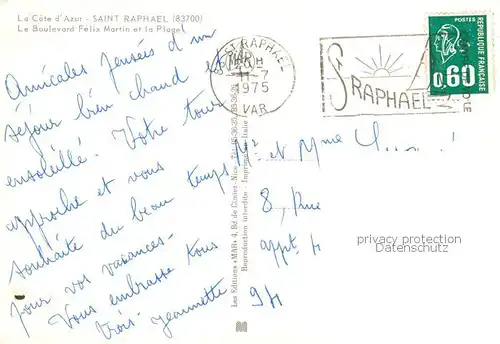 La Côte d'Azur - SAINT RAPHAEL (83700)
Le Boulevard Félix Martin et la Plage
Amicales pensées d'un
séjour bien chaud et
ensoleillé. Votre tour
approche et vous
souhaite du beau temps
pour vos vacances.
Vous embrasse tous
trois. Jeannette
ST RAPHAEL
11-7
1975
VAR
St RAPHAEL
POSTES
REPUBLIQUE FRANÇAISE
0,60
Les Editions «MAR» 4, Bd de Cimiez - Nice
Reproduction interdite - Imprimé en Italie
et Mme
8, Rue
appt 4
94
privacy protection
Dateschutz